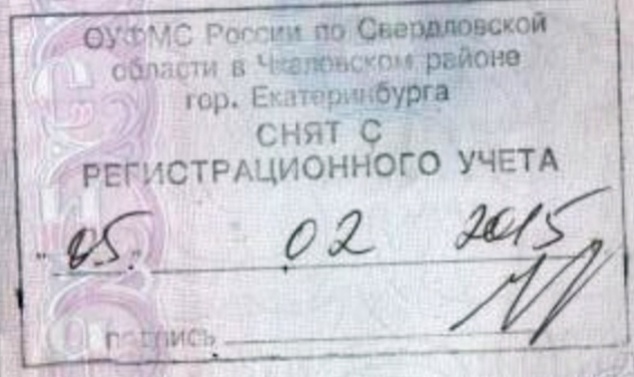 ОУФМС России по Свердловской
области в Чкаловском районе
гор. Екатеринбурга
СНЯТ С
РЕГИСТРАЦИОННОГО УЧЕТА
"05" 02 2015
подпись